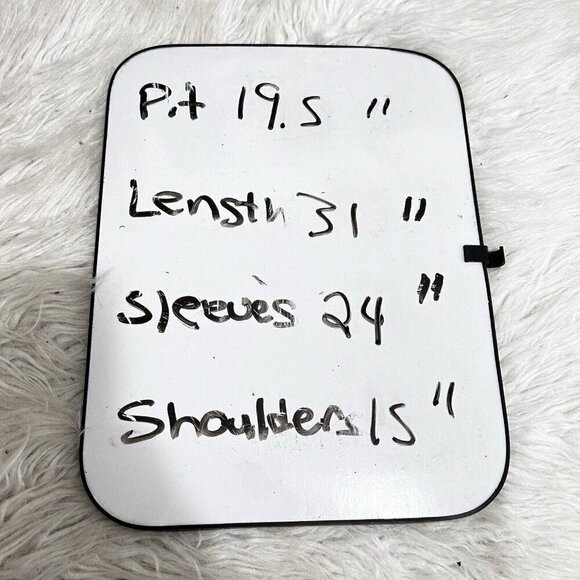 Pit 19.5 "
Length 31 "
Sleeves 24 "
Shoulders 15 "